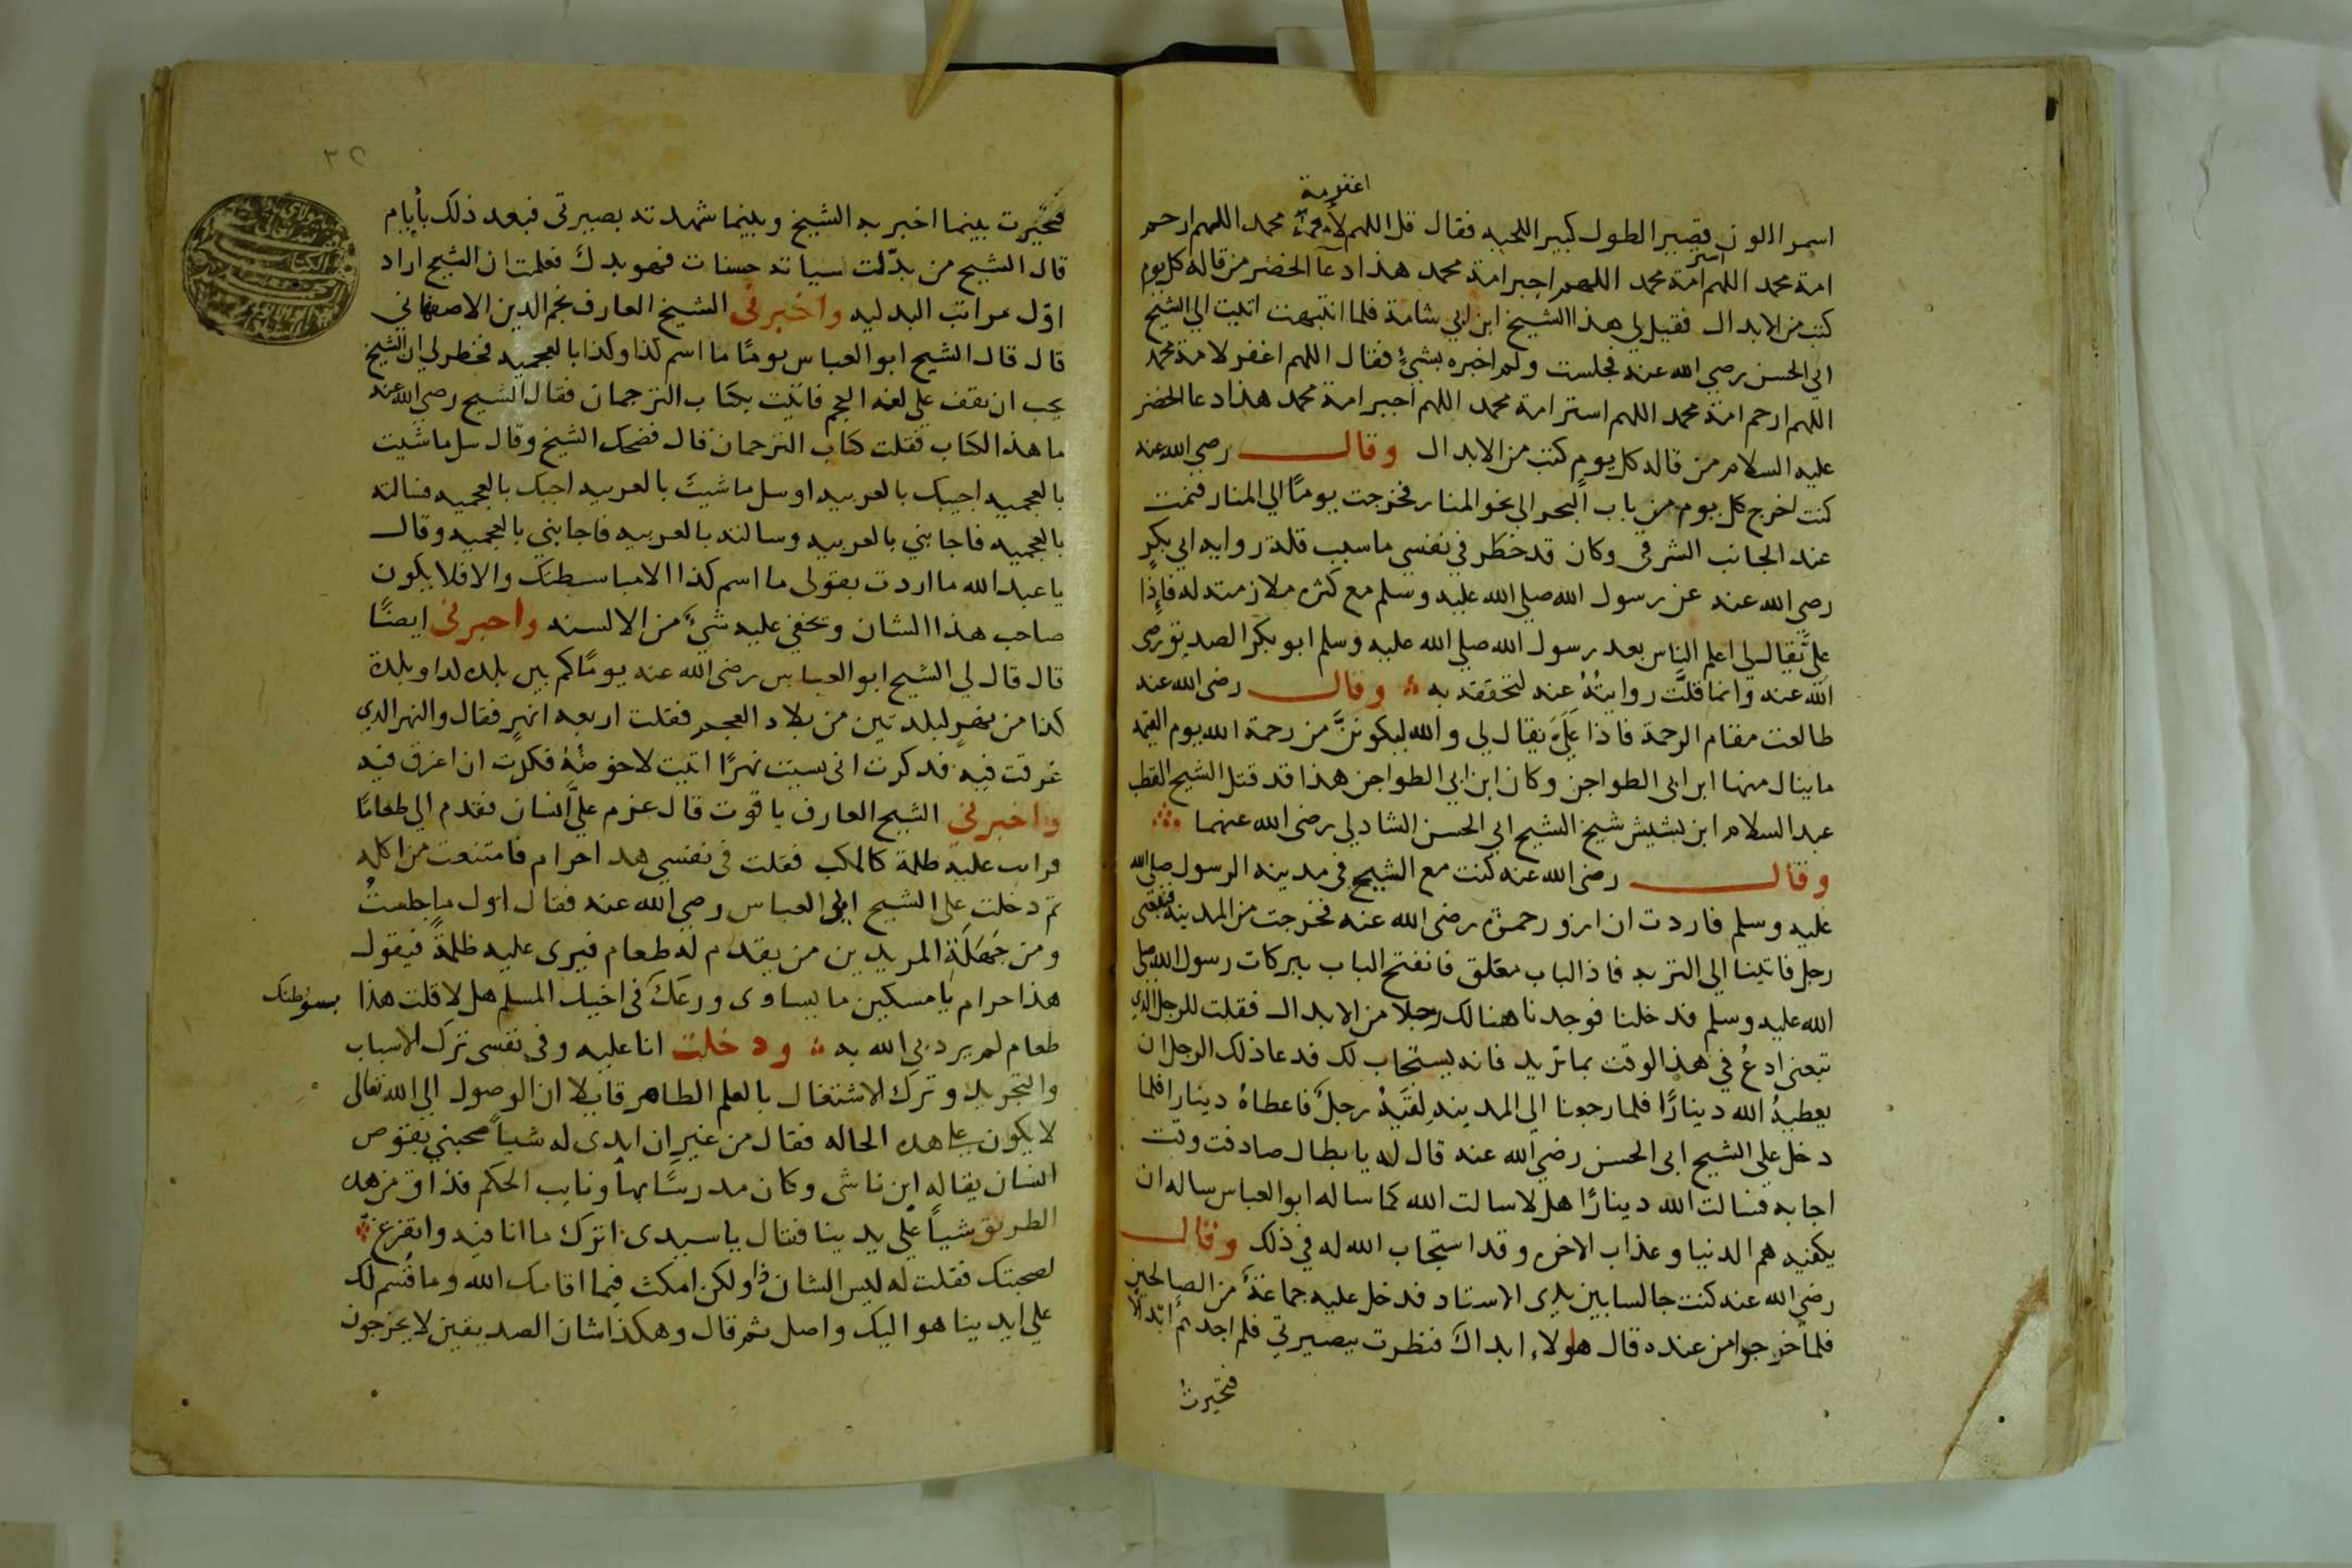 اغفر مة
اسمر اللون قصير الطول كبير اللحيه فقال قل اللهم لأمة محمد اللهم ارحم
امة محمد اللهم استر امة محمد اللهم اجبر امة محمد هذا دعآ الخضر من قاله كل يوم
كتب من الابدال فقيل لي هذا الشيخ ابن ابي شامة فلما انتبهت اتيت الي الشيخ
ابي الحسن رضي الله عنه فجلست ولم اخبره بشئ فقال اللهم اغفر لامة محمد
اللهم ارحم امة محمد اللهم استر امة محمد اللهم اجبر امة محمد هذا دعا الخضر
عليه السلام من قاله كل يوم كتب من الابدال وقال رضي الله عنه
كنت اخرج كل يوم من باب البحر الي نحو المنار فخرجت يومًا الي المنار فنمت
عند الجانب الشرقي وكان قد خطر في نفسي ما سبب قلة روايه ابي بكرٍ
رضي الله عنه عن رسول الله صلي الله عليه وسلم مع كثره ملازمته له فاذا
عليَّ يقال لي اعلم الناس بعد رسول الله صلي الله عليه وسلم ابو بكر الصديق رضي
الله عنه وانما قلَّت روايتُهُ عنه لتحققه به وقال رضى الله عنه
طالعت مقام الرحمة فاذا عَلَيَّ يقال لي والله ليكوننَّ من رحمة الله يوم القيمه
ما ينال منها ابن ابى الطواجن وكان ابن ابي الطواجن هذا قد قتل الشيخ القطب
عبد السلام ابن بشيش شيخ الشيخ ابي الحسن الشادلي رضى الله عنهما
وقال رضى الله عنه كنت مع الشيخ في مدينه الرسول صلى الله
عليه وسلم فاردت ان ازور حمزه رضى الله عنه فخرجت من المدينه فتبعنى
رجل فاتينا الي التربه فاذ الباب مغلق فانفتح الباب ببركات رسول الله صلي
الله عليه وسلم فدخلنا فوجدنا هنالك رجلا من الابدال فقلت للرجل الذي
تبعنى ادعُ في هذا الوقت بما تريد فانه يستجاب لك فدعا ذلك الرجل ان
يعطيهُ الله دينارًا فلما رجعنا الي المدينه لقيَهُ رجل فاعطاهُ دينارا فلما
دخل علي الشيخ ابى الحسن رضي الله عنه قال له يا بطال صادفت وقت
اجابه فسالت الله دينارًا هل لا سالت الله كما ساله ابو العباس ساله ان
يكفيه هم الدنيا وعذاب الاخره وقد استجاب الله له في ذلك وقال
رضي الله عنه كنت جالسا بين يدى الاستاد فدخل عليه جماعةٌ من الصالحين
فلما خرجوا من عنده قال هولاء ابدالٌ فنظرت ببصيرتي فلم اجدهُم ابدالا
فتحيرت
٣٢
فتحيّرت بينما اخبر به الشيخ وبينما شهدته بصيرتى فبعد ذلك بأيام
قال الشيخ من بدّلت سياته حسنات فهو بدل فعلمت ان الشيخ اراد
اوّل مراتب البدليه واخبرنى الشيخ العارف نجم الدين الاصفهاني
قال قال الشيخ ابو العباس يومًا ما اسم كذا وكذا بالعجميه فخطر لي ان الشيخ
يحب ان يقف علي لغه العجم فاتيت بكتاب الترجمان فقال الشيخ رضي الله عنه
ما هذا الكتاب فقلت كتاب الترجمان قال فضحك الشيخ وقال سل ما شيت
بالعجميه اجيبك بالعربيه او سل ما شيت بالعربيه اجبك بالعجميه فسالته
بالعجميه فاجابني بالعربيه وسالته بالعربيه فاجابني بالعجميه وقال
يا عبد الله ما اردت بقولى ما اسم كذا الا مباسطتك والا فلا يكون
صاحب هذا الشان ويخفي عليه شيٌ من الالسنه واخبرنى ايضًا
قال قال لي الشيخ ابو العباس رضى الله عنه يومًا كم بين بلده كذا وبلدة
كذا من نهرٍ لبلدتين من بلاد العجم فقلت اربعه انهرٍ فقال والنهر الذي
غرقت فيه فدكرت انى نسيت نهرًا اتيت لاخوضهُ فكدت ان اغرق فيه
واخبرني الشيخ العارف ياقوت قال عزم عليَّ انسان فقدم الي طعامًا
فرايت عليه ظلمة كالمكب فقلت فى نفسي هدا حرام فامتنعت من اكله
ثم دخلت على الشيخ ابى العباس رضي الله عنه فقال اول ما جلستُ
ومن جَهَلَةِ المريدين من يقدم له طعام فيرى عليه ظلمةً فيقول
هذا حرام يا مسكين ما يساوى ورعَكَ فى اخيك المسلم هل لا قلت هذا
بسوٕ ظنك
طعام لم يردني الله به ودخلت انا عليه وفى نفسى ترك الاسباب
والتجريد وترك الاشتغال بالعلم الظاهر قايلا ان الوصول الى الله تعالى
لا يكون علي هده الحاله فقال من غير ان ابدى له شياً صحبني بقوص
انسان يقال له ابن ناشى وكان مدرسًا بها ونايب الحكم فذاق من هده
الطريق شياً علي يدينا فقال يا سيدى اترك ما انا فيه واتفرغ
لصحبتك فقلت له ليس الشان ذا ولكن امكث فيما اقامك الله وما قُسم لك
علي ايدينا هو اليك واصل ثم قال وهكذا شان الصديقين لا يخرجون